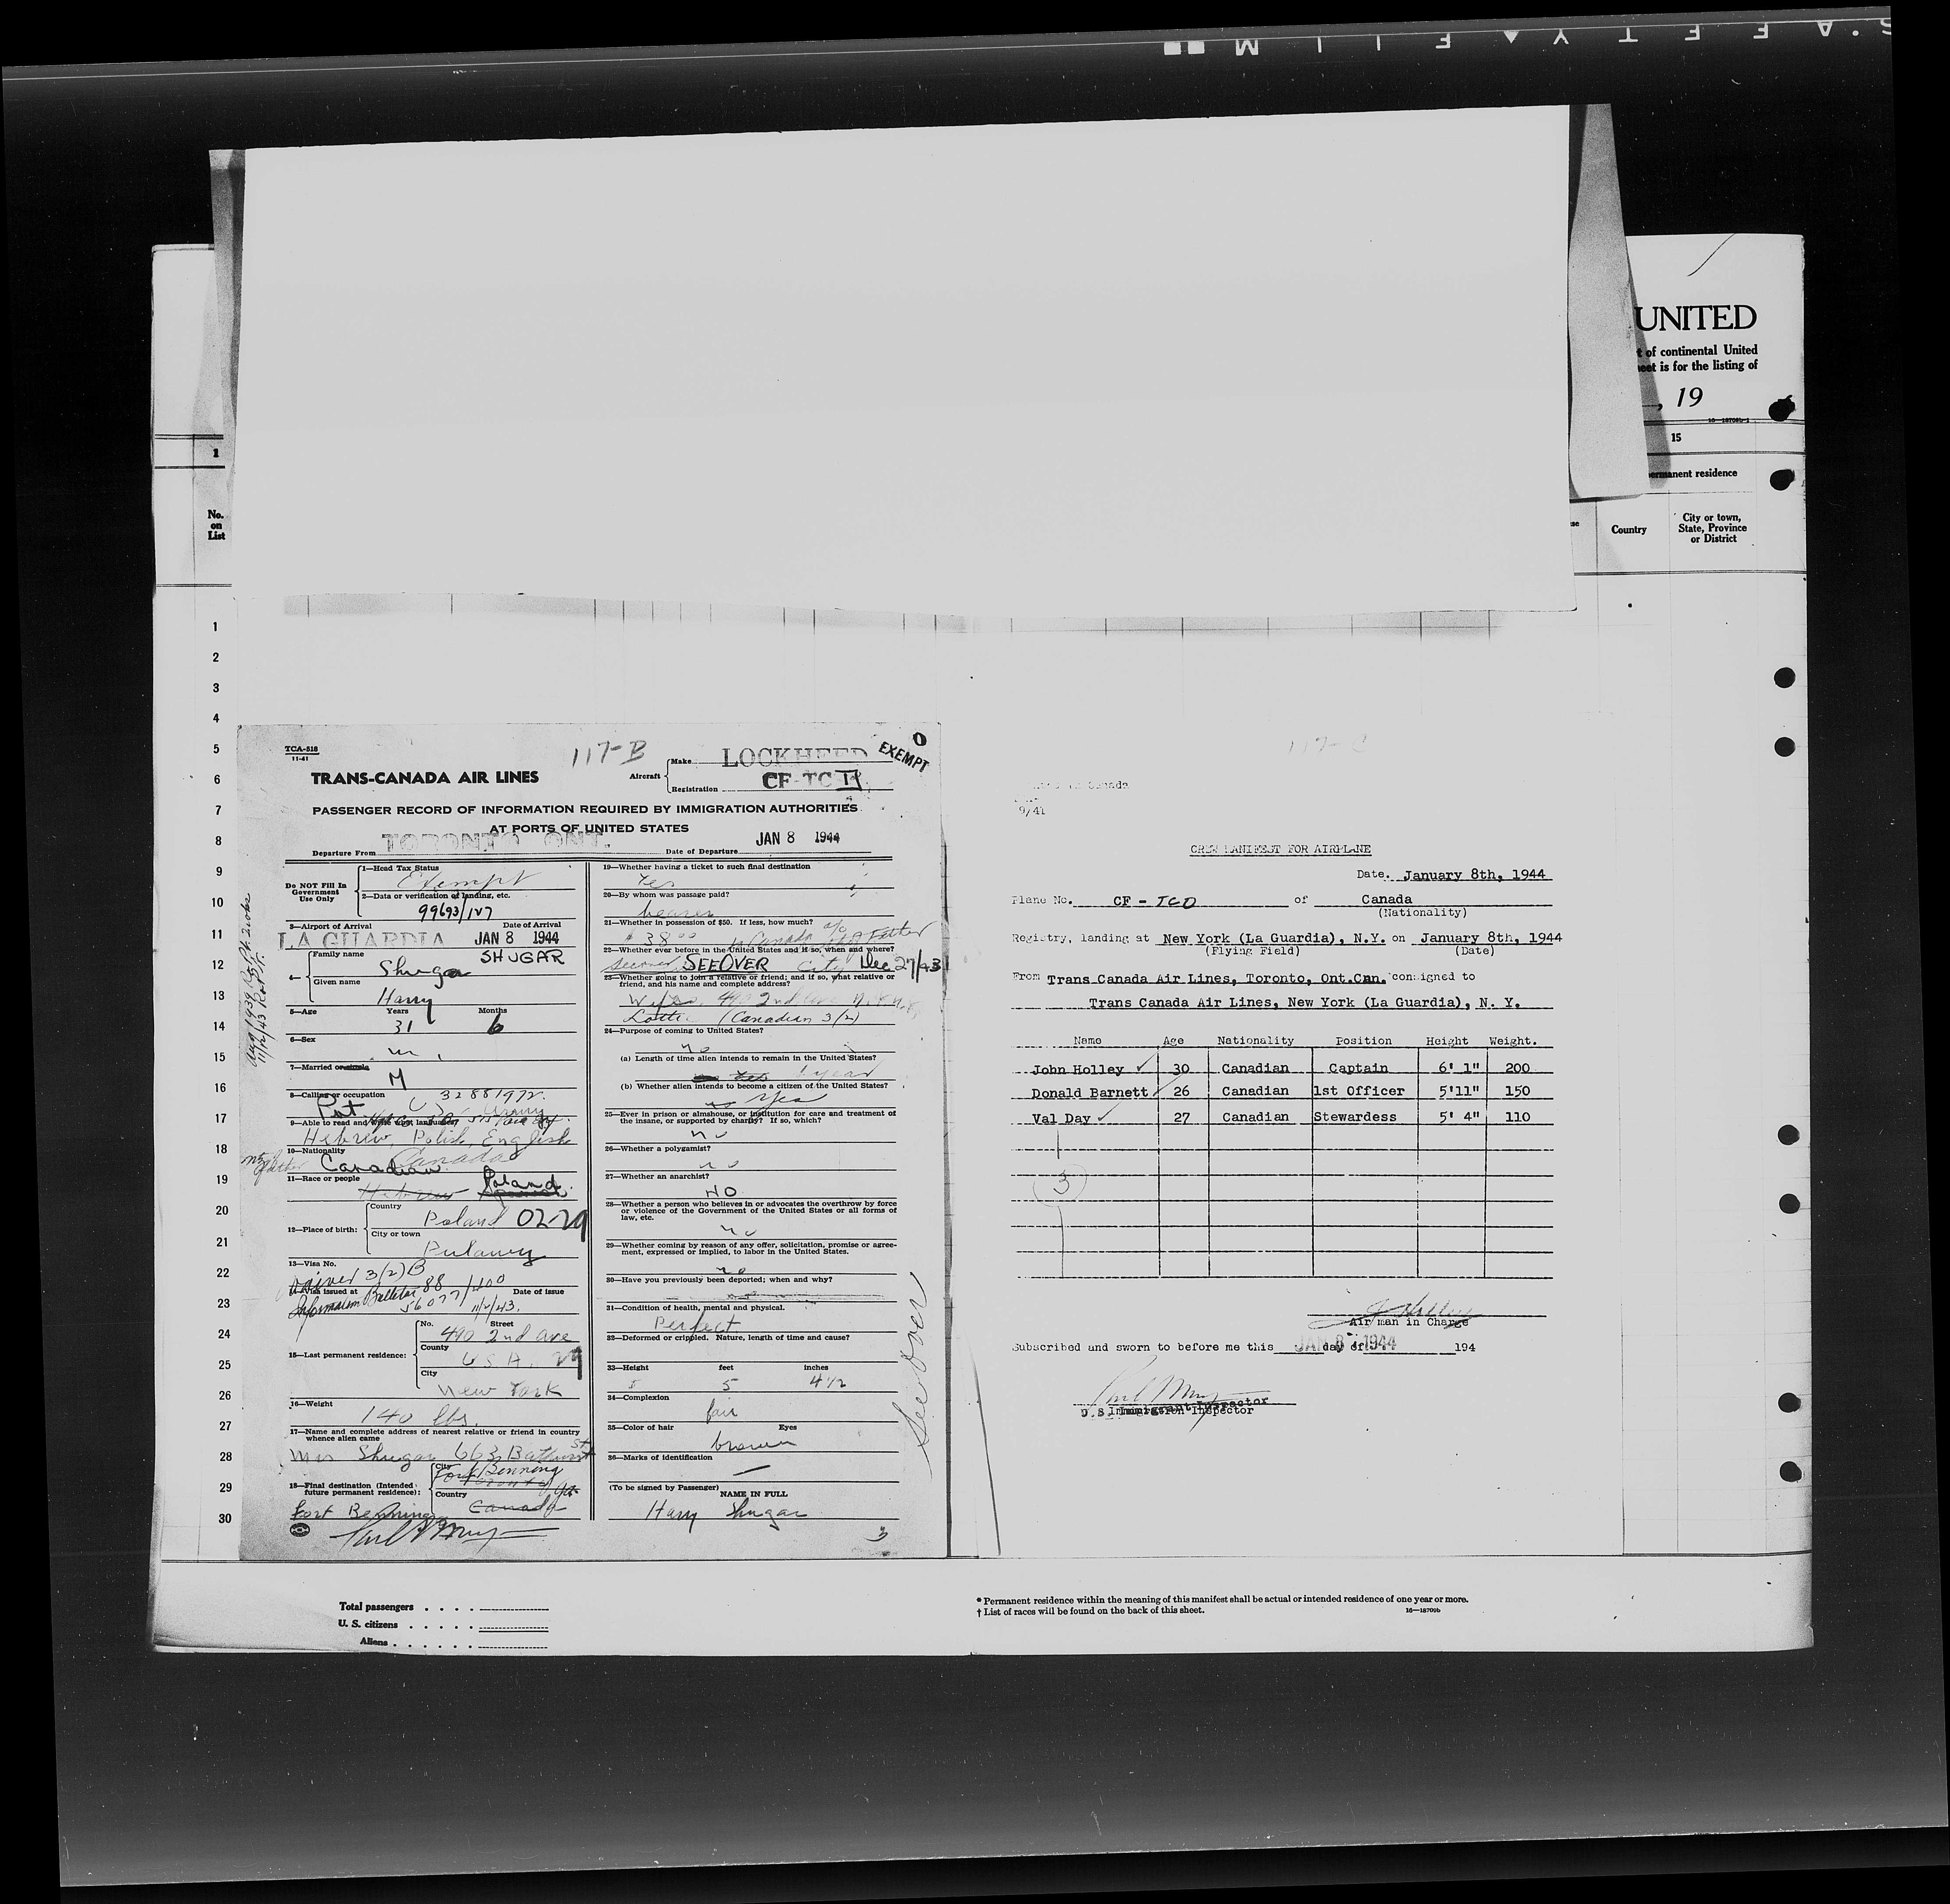 SAFETY FILM
UNITED
t of continental United
eet is for the listing of
, 19
16—18709b-1
1
15
ermanent residence
No.
on
List
Country
City or town,
State, Province
or District
1
2
3
4
5
6
7
8
9
10
11
12
13
14
15
16
17
18
19
20
21
22
23
24
25
26
27
28
29
30
TCA-518
11-41
117-B
TRANS-CANADA AIR LINES
Aircraft
Make LOCKHEED
Registration CF-TC
EXEMPT
PASSENGER RECORD OF INFORMATION REQUIRED BY IMMIGRATION AUTHORITIES
AT PORTS OF UNITED STATES
Departure From TORONTO ONT. Date of Departure JAN 8 1944
Do NOT Fill In
Government
Use Only
1—Head Tax Status
Exempt
2—Data or verification of landing, etc.
99693/127
3—Airport of Arrival Date of Arrival
LA GUARDIA JAN 8 1944
4— Family name SHUGAR
Shugar
Given name
Harry
5—Age Years Months
31 6
6—Sex
m
7—Married or single
M
8—Calling or occupation 32881972
Pvt U.S. Army
9—Able to read and write what language?
Hebrew, Polish, English
10—Nationality
Canadian Canada
11—Race or people
Hebrew Poland
12—Place of birth: Country
Poland 02-29
City or town
Pulawy
13—Visa No.
waiver 3(2)B
Visa issued at Date of issue
Information Bulletin 88
56077/400
11/2/43.
15—Last permanent residence:
No. Street
490 2nd ave
County
U.S.A. 29
City
New York
16—Weight
140 lbs.
17—Name and complete address of nearest relative or friend in country
whence alien came
Mrs Shugar 663 Bathurst St
18—Final destination (Intended
future permanent residence):
City
Fort Benning
Toronto Ga
Country
Canada
Fort Benning
19—Whether having a ticket to such final destination
Yes
20—By whom was passage paid?
bearer
21—Whether in possession of $50. If less, how much?
$ 38 00 to Canada Father
22—Whether ever before in the United States and if so, when and where?
SEE OVER City Dec 27/43
23—Whether going to join a relative or friend; and if so, what relative or
friend, and his name and complete address?
Wife, 490 2nd ave N.Y. N.Y.
(Canadian 3(2)
24—Purpose of coming to United States?
no
(a) Length of time alien intends to remain in the United States?
1 year
(b) Whether alien intends to become a citizen of the United States?
yes
25—Ever in prison or almshouse, or institution for care and treatment of
the insane, or supported by charity? If so, which?
no
26—Whether a polygamist?
no
27—Whether an anarchist?
NO
28—Whether a person who believes in or advocates the overthrow by force
or violence of the Government of the United States or all forms of
law, etc.
no
29—Whether coming by reason of any offer, solicitation, promise or agree-
ment, expressed or implied, to labor in the United States.
no
30—Have you previously been deported; when and why?
no
31—Condition of health, mental and physical.
Perfect
32—Deformed or crippled. Nature, length of time and cause?
33—Height feet inches
5 4½
34—Complexion
fair
35—Color of hair Eyes
brown
36—Marks of identification
—
(To be signed by Passenger)
NAME IN FULL
Harry Shugar
See over
Canada
9/41
CREW MANIFEST FOR AIRPLANE
Date. January 8th, 1944
Plane No. CF - TCD of Canada
(Nationality)
Registry, landing at New York (La Guardia), N.Y. on January 8th, 1944
(Flying Field) (Date)
From Trans Canada Air Lines, Toronto, Ont.Can. consigned to
Trans Canada Air Lines, New York (La Guardia), N. Y.
Name Age Nationality Position Height Weight.
John Holley 30 Canadian Captain 6' 1" 200
Donald Barnett 26 Canadian 1st Officer 5'11" 150
Val Day 27 Canadian Stewardess 5' 4" 110
3
J Holley
Air man in Charge
Subscribed and sworn to before me this JAN 8 1944 day of 194
U.S. Immigration Inspector
Total passengers
U. S. citizens
Aliens
* Permanent residence within the meaning of this manifest shall be actual or intended residence of one year or more.
† List of races will be found on the back of this sheet.
16—18709b